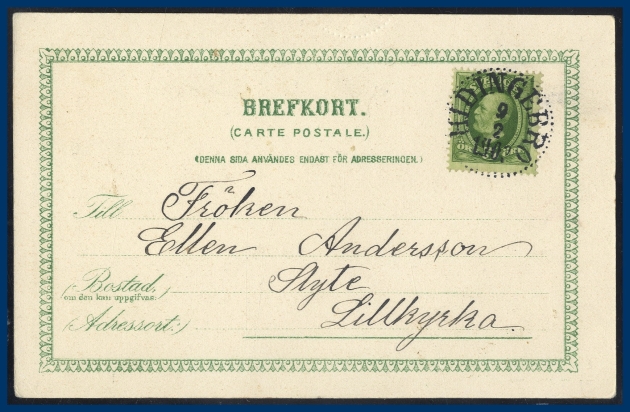 BREFKORT.
(CARTE POSTALE.)
(DENNA SIDA ANVÄNDES ENDAST FÖR ADRESSERINGEN.)
HIDINGEBRO
9
2
Till Fröken
Ellen Andersson
(Bostad,) Styte
om den kan uppgifvas
(Adressort:) Lillkyrka.